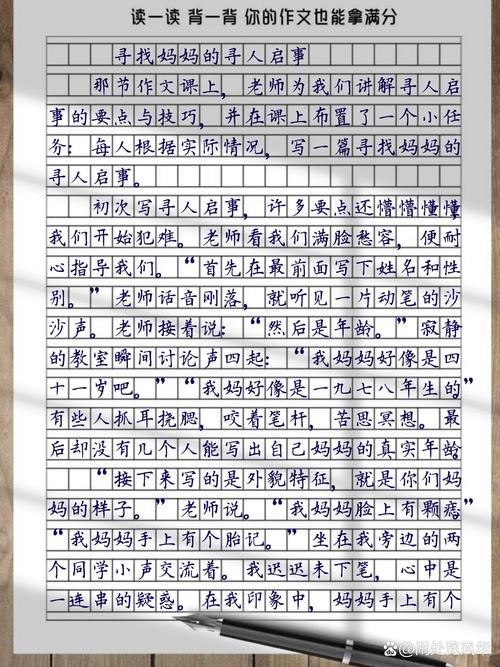 读一读 背一背 你的作文也能拿满分
寻找妈妈的寻人启事
那节作文课上，老师为我们讲解寻人启
事的要点与技巧，并在课上布置了一个小任
务：每人根据实际情况，写一篇寻找妈妈的
寻人启事。
初次写寻人启事，许多要点还懵懵懂懂，
我们开始犯难。老师看我们满脸愁容，便耐
心指导我们。“首先在最前面写下姓名和性
别。”老师话音刚落，就听见一片动笔的沙
沙声。老师接着说：“然后是年龄。”寂静
的教室瞬间讨论声四起：“我妈妈好像是四
十一岁吧。”“我妈好像是一九七八年生的”
有些人抓耳挠腮，咬着笔杆，苦思冥想。最
后却没有几个人能写出自己妈妈的真实年龄。
“接下来写的是外貌特征，就是你们妈
妈的样子。”老师说。“我妈妈脸上有颗痣”
“我妈妈手上有个胎记。”坐在我旁边的两
个同学小声交流着。我迟迟未下笔，心中是
一连串的疑惑。在我印象中，妈妈手上有个